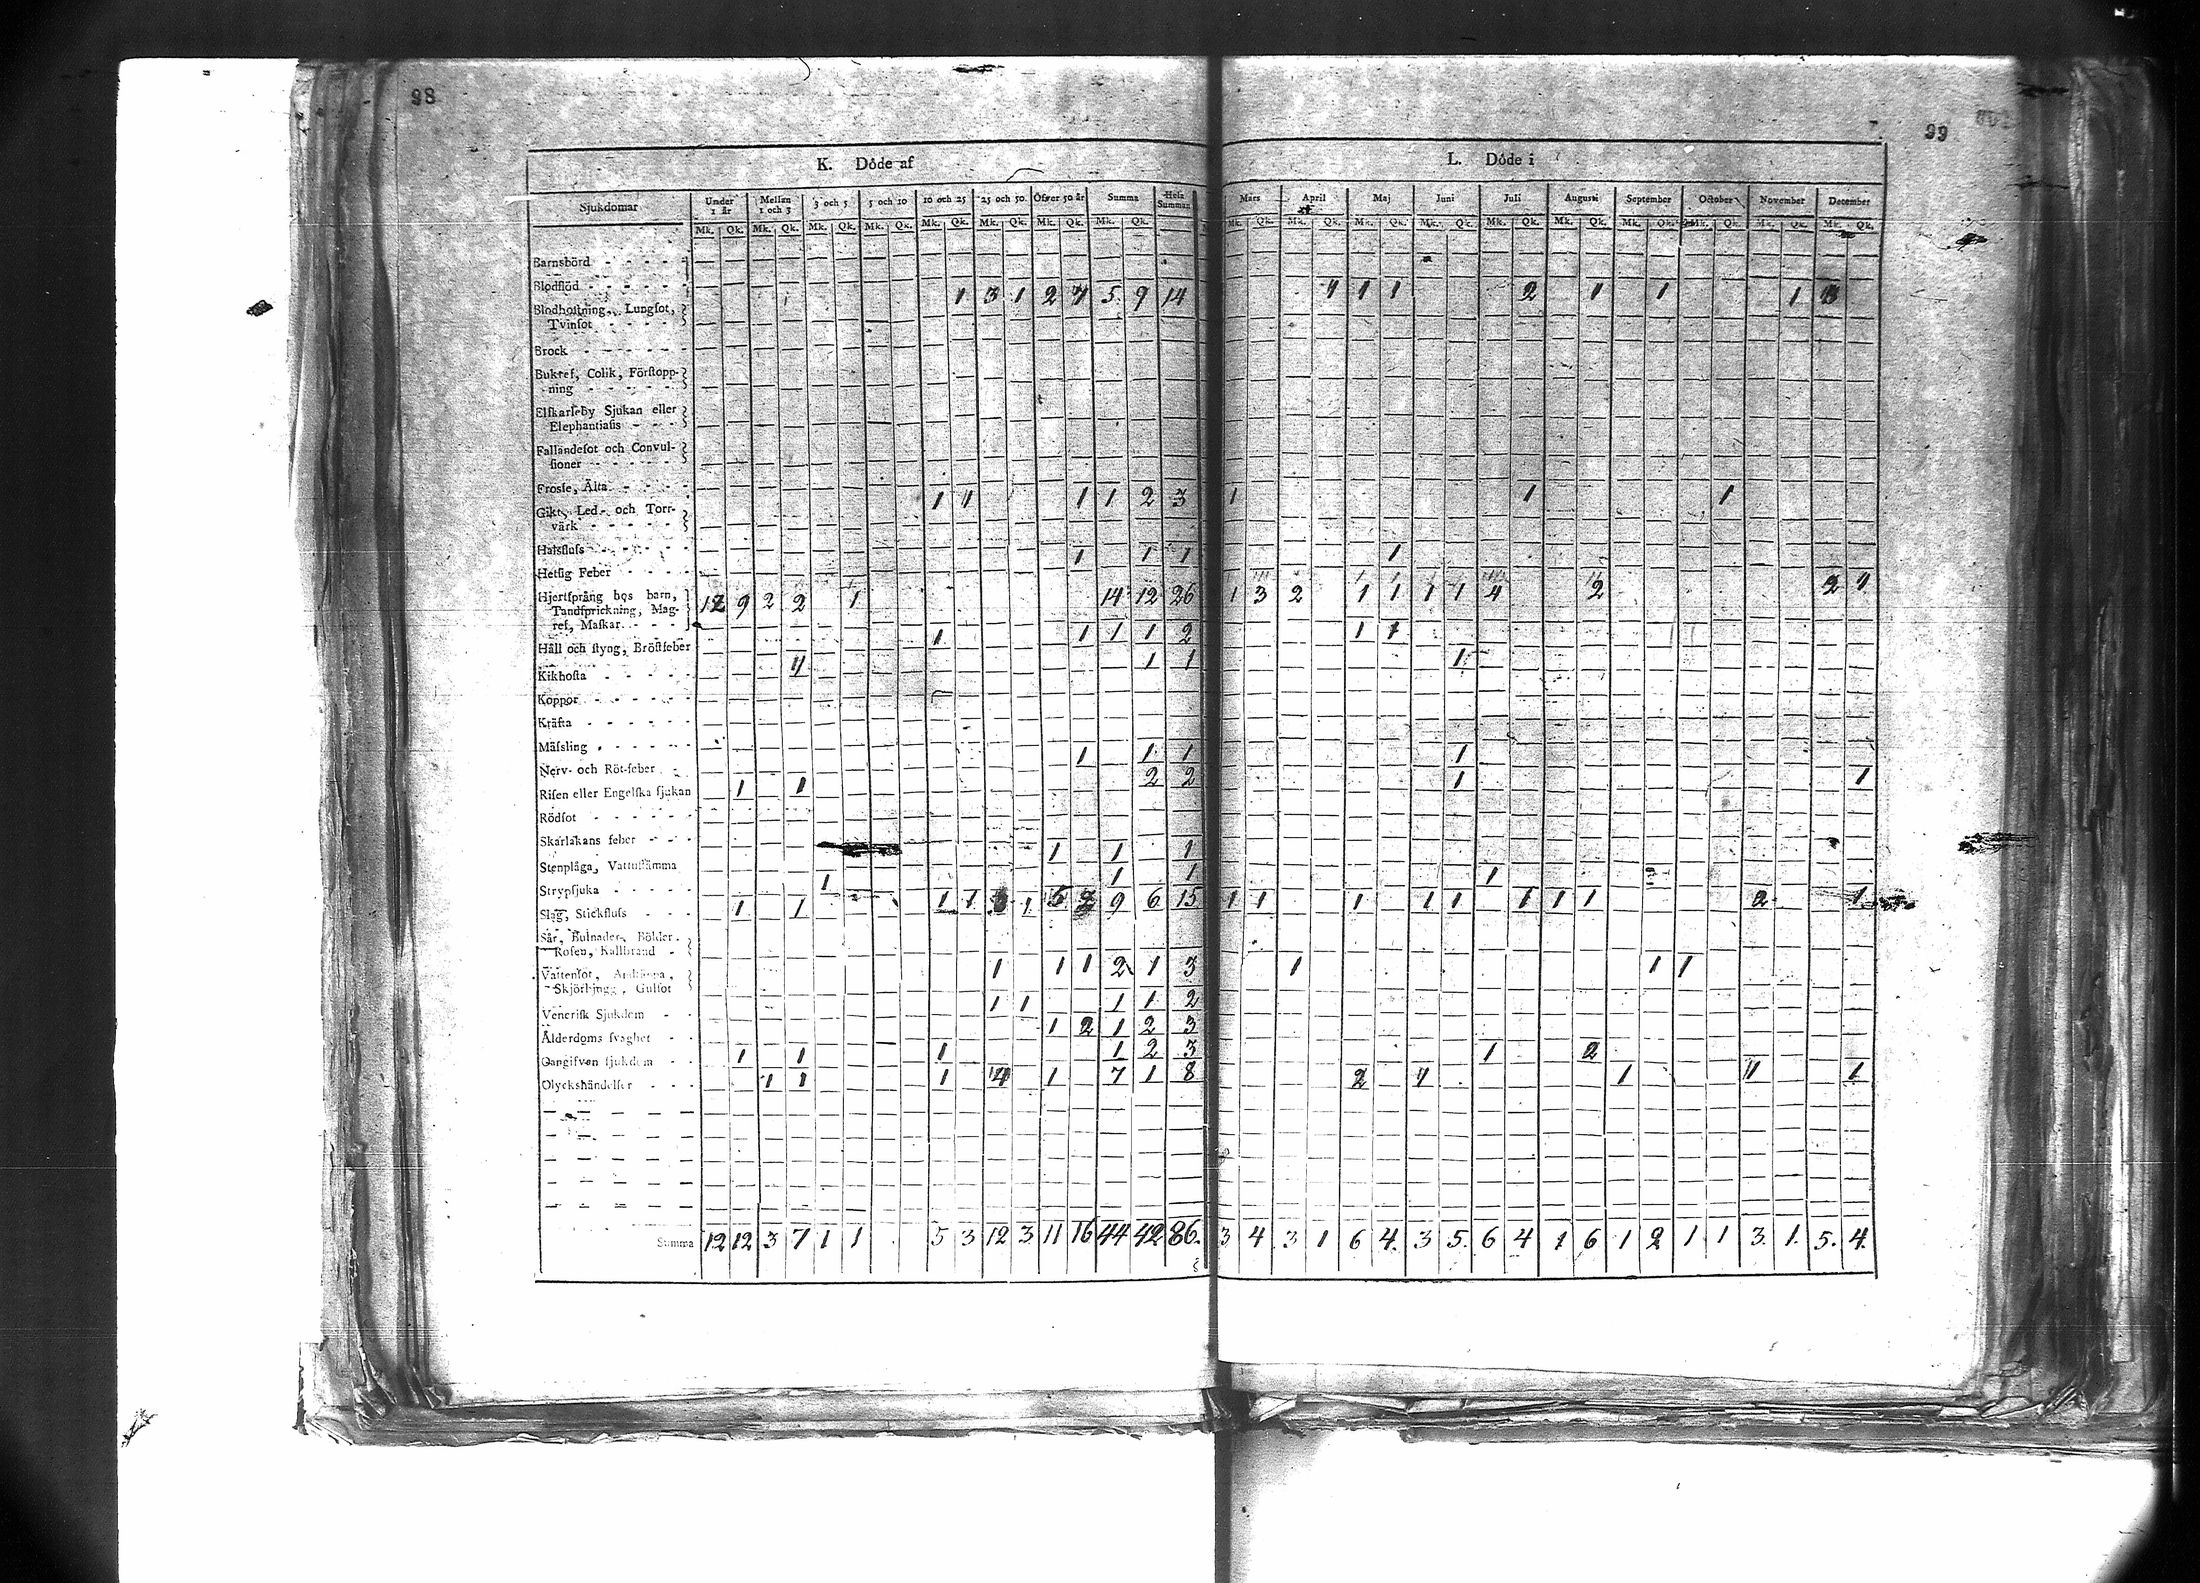 98
99
K. Döde af
L. Döde i
Sjukdomar Under 1 år Mellan 1 och 3 3 och 5 5 och 10 10 och 25 25 och 50 Öfver 50 år Summa Hela Summan Mars April Maj Juni Juli Augusti September October November December
Mk. Qk. Mk. Qk. Mk. Qk. Mk. Qk. Mk. Qk. Mk. Qk. Mk. Qk. Mk. Qk. Mk. Qk. Mk. Qk. Mk. Qk. Mk. Qk. Mk. Qk. Mk. Qk. Mk. Qk. Mk. Qk. Mk. Qk. Mk. Qk.
Barnsbörd
Blodflöd
1 3 1 2 7 5 9 14 1 1 2 1 1 1
Blodhoſtning, Lungſot,
Tvinſot
Brock
Bukref, Colik, Förſtopp-
ning
Elſkarleby Sjukan eller
Elephantiaſis
Fallandeſot och Convul-
ſioner
Froſſe, Älta
1 1 1 2 3 1 1 1
Gikt, Led- och Torr-
värk
Halsfluſs
1 1 1 1
Hetſig Feber
Hjertſprång hos barn, 12 9 2 2 1 14 12 26 1 3 2 1 1 1 1 4 2 2 1
Tandſprickning, Mag-
ref, Maſkar
1 1 1 1 2 1 1
Håll och ſtyng, Bröſtfeber
1 1 1
Kikhoſta
Koppor
Kräfta
Mäſsling
1 1 1 1
Nerv- och Röt-feber
1 1 2 2 1 1
Riſen eller Engelſka ſjukan
Rödſot
Skarlakans feber
1 1 1
Stenplåga, Vattuſtämma
1 1 1 1
Strypſjuka
1 1 1 1 1 9 6 15 1 1 1 1 1 1 1 1 2 1
Slag, Stickfluſs
Sår, Bulnader, Bölder
Roſen, Kallbrand
1 1 1 2 1 3 1 1 1
Vattenſot,
Skjörbjugg, Gulſot
1 1 1 1 2
Veneriſk Sjukdom
1 2 1 2 3
Ålderdoms ſvaghet
1 1 1 1 2 3 1 2
Oangifven ſjukdom
1 1 1 1 7 1 8 2 1 1
Olyckshändelſer
Summa 12 12 3 7 1 1 5 3 12 3 11 16 44 42 86. 3 4 3 1 6 4. 3 5. 6 4 1 6 1 2 1 1 3. 1. 5. 4.